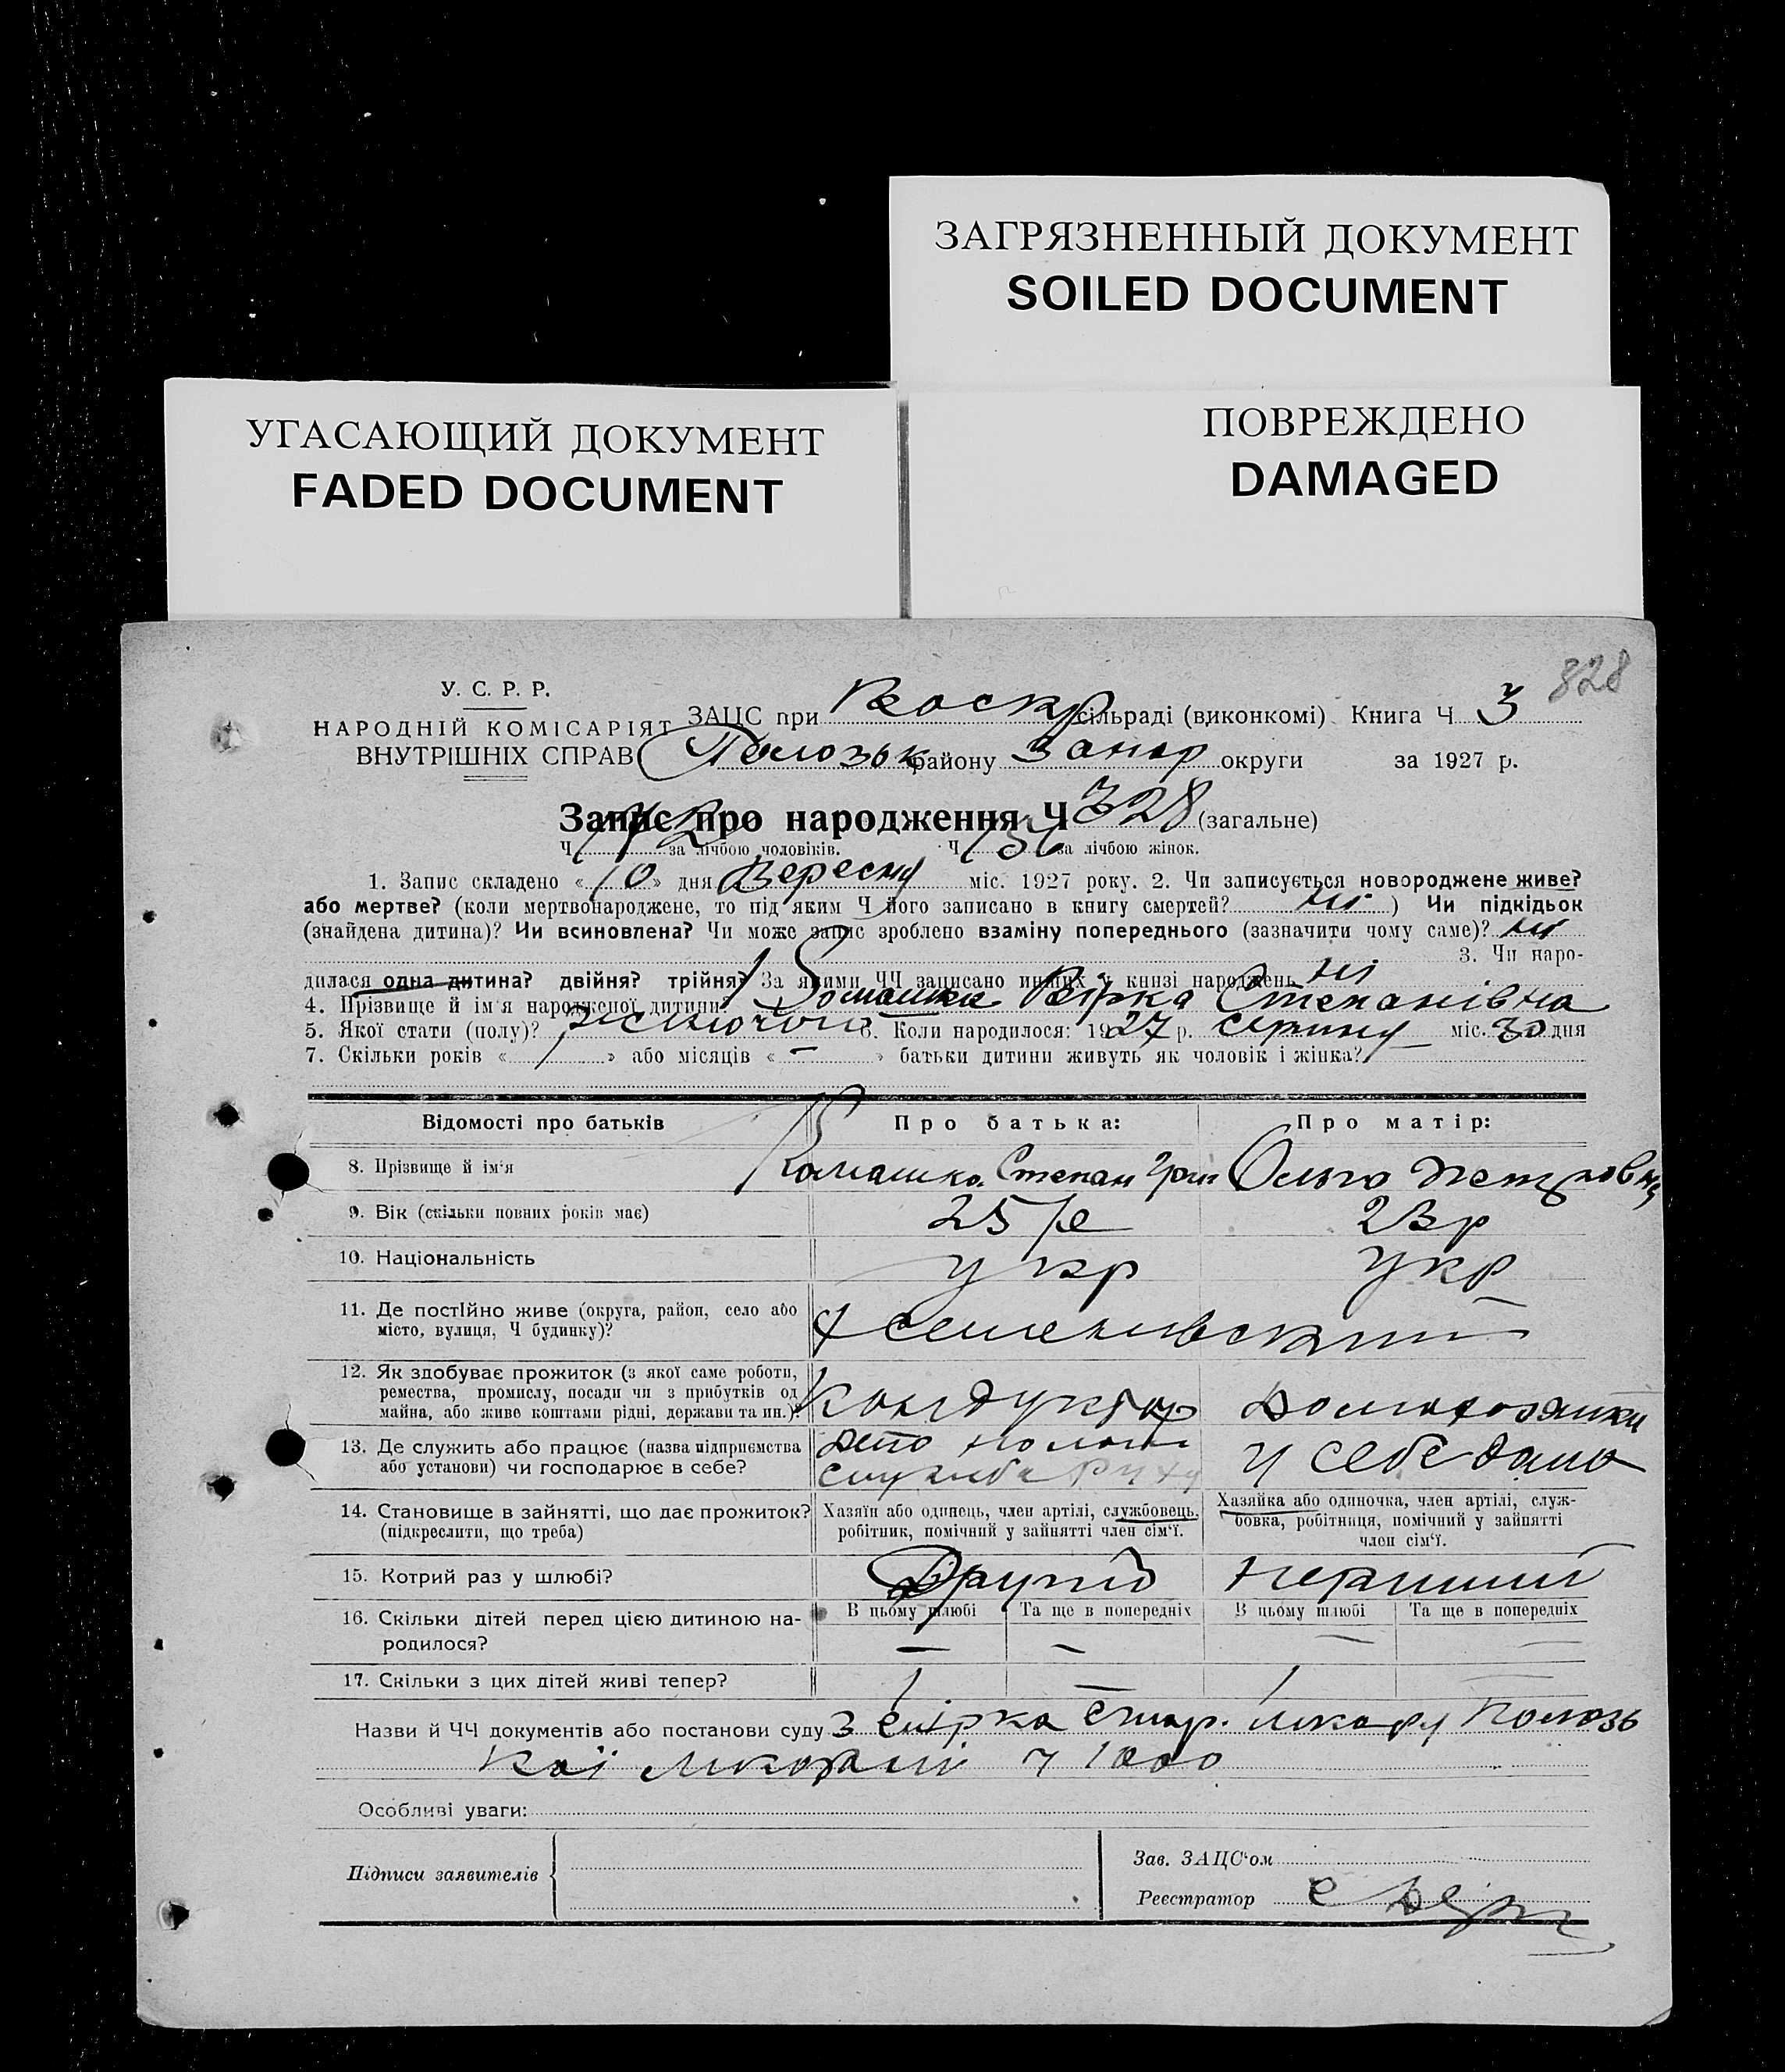 ЗАГРЯЗНЕННЫЙ ДОКУМЕНТ
SOILED DOCUMENT
УГАСАЮЩИЙ ДОКУМЕНТ
FADED DOCUMENT
ПОВРЕЖДЕНО
DAMAGED
828
У. С. Р. Р.
НАРОДНІЙ КОМІСАРІЯТ
ВНУТРІШНІХ СПРАВ
ЗАЦС при Воскр сільраді (виконкомі) Книга Ч 3
Пологзьк району Запор округи за 1927 р.
Запис про народження Ч 328 (загальне)
Ч за лічбою чоловіків. Ч 136 за лічбою жінок.
1. Запис складено «10» дня Вересня міс. 1927 року. 2. Чи записується новороджене живе?
або мертве? (коли мертвонароджене, то під яким Ч його записано в книгу смертей? ні) Чи підкідьок
(знайдена дитина)? Чи всиновлена? Чи може запис зроблено взаміну попереднього (зазначити чому саме)? ні
3. Чи наро-
дилася одна дитина? двійня? трійня? За якими ЧЧ записано инших у книзі народжень ні
4. Прізвище й ім'я народженої дитини? Ромашка Вірка Степанівна
5. Якої стати (полу)? жіночої 6. Коли народилося: 1927 р. серпня міс. 30 дня
7. Скільки років « 1 » або місяців « – » батьки дитини живуть як чоловік і жінка?
Відомості про батьків
Про батька:
Про матір:
8. Прізвище й ім'я Ромашко Степан Григ Ольга Петровна
9. Вік (скільки повних років має) 25 р 23 р
10. Національність укр укр
11. Де постійно живе (округа, район, село або
місто, вулиця, Ч будинку)? х Семеновский
12. Як здобуває прожиток (з якої саме роботи,
ремества, промислу, посади чи з прибутків од
майна, або живе коштами рідні, держави та ин.)? Кондуктор домохозяйки
13. Де служить або працює (назва підприємства
або установи) чи господарює в себе? депо Пологи
служба Руху
у себе дома
14. Становище в зайнятті, що дає прожиток?
(підкреслити, що треба)
Хазяїн або одинець, член артілі, службовець,
робітник, помічний у зайнятті член сім'ї.
Хазяйка або одиночка, член артілі, служ-
бовка, робітниця, помічний у зайнятті
член сім'ї.
15. Котрий раз у шлюбі? Другий Перший
16. Скільки дітей перед цією дитиною на-
родилося?
В цьому шлюбі Та ще в попередніх В цьому шлюбі Та ще в попередніх
– – – –
17. Скільки з цих дітей живі тепер? 1 – 1 –
Назви й ЧЧ документів або постанови суду Полозь
кої лікарні ч 1000
Особливі уваги:
Підписи заявителів
Зав. ЗАЦС'ом
Реєстратор